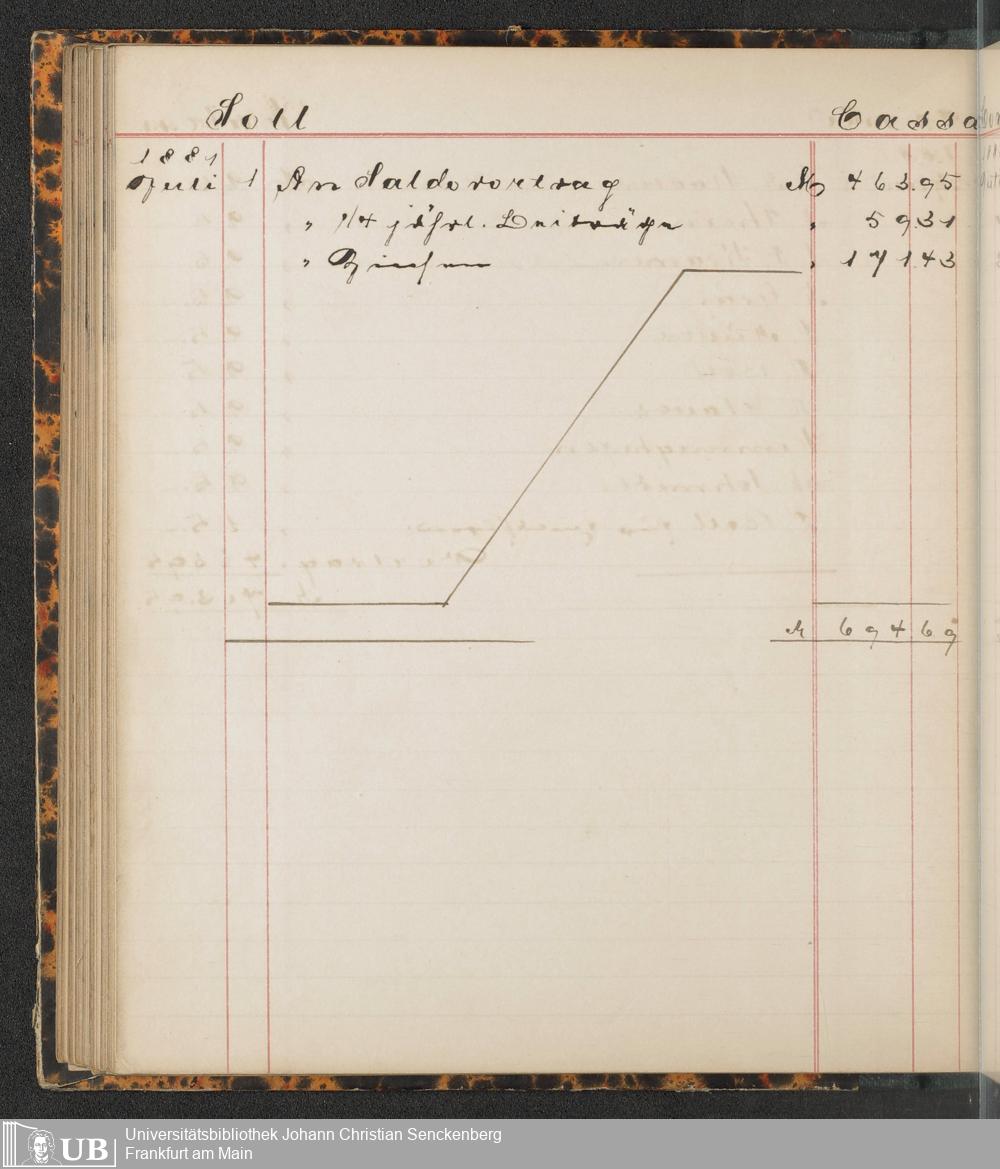 Soll Cassa
1881
Juli 1 An Saldovortrag M 463.95
" 1/4 jährl. Beiträge " 59.31
" Zinsen " 171.43
M 694.69
UB Universitätsbibliothek Johann Christian Senckenberg
Frankfurt am Main